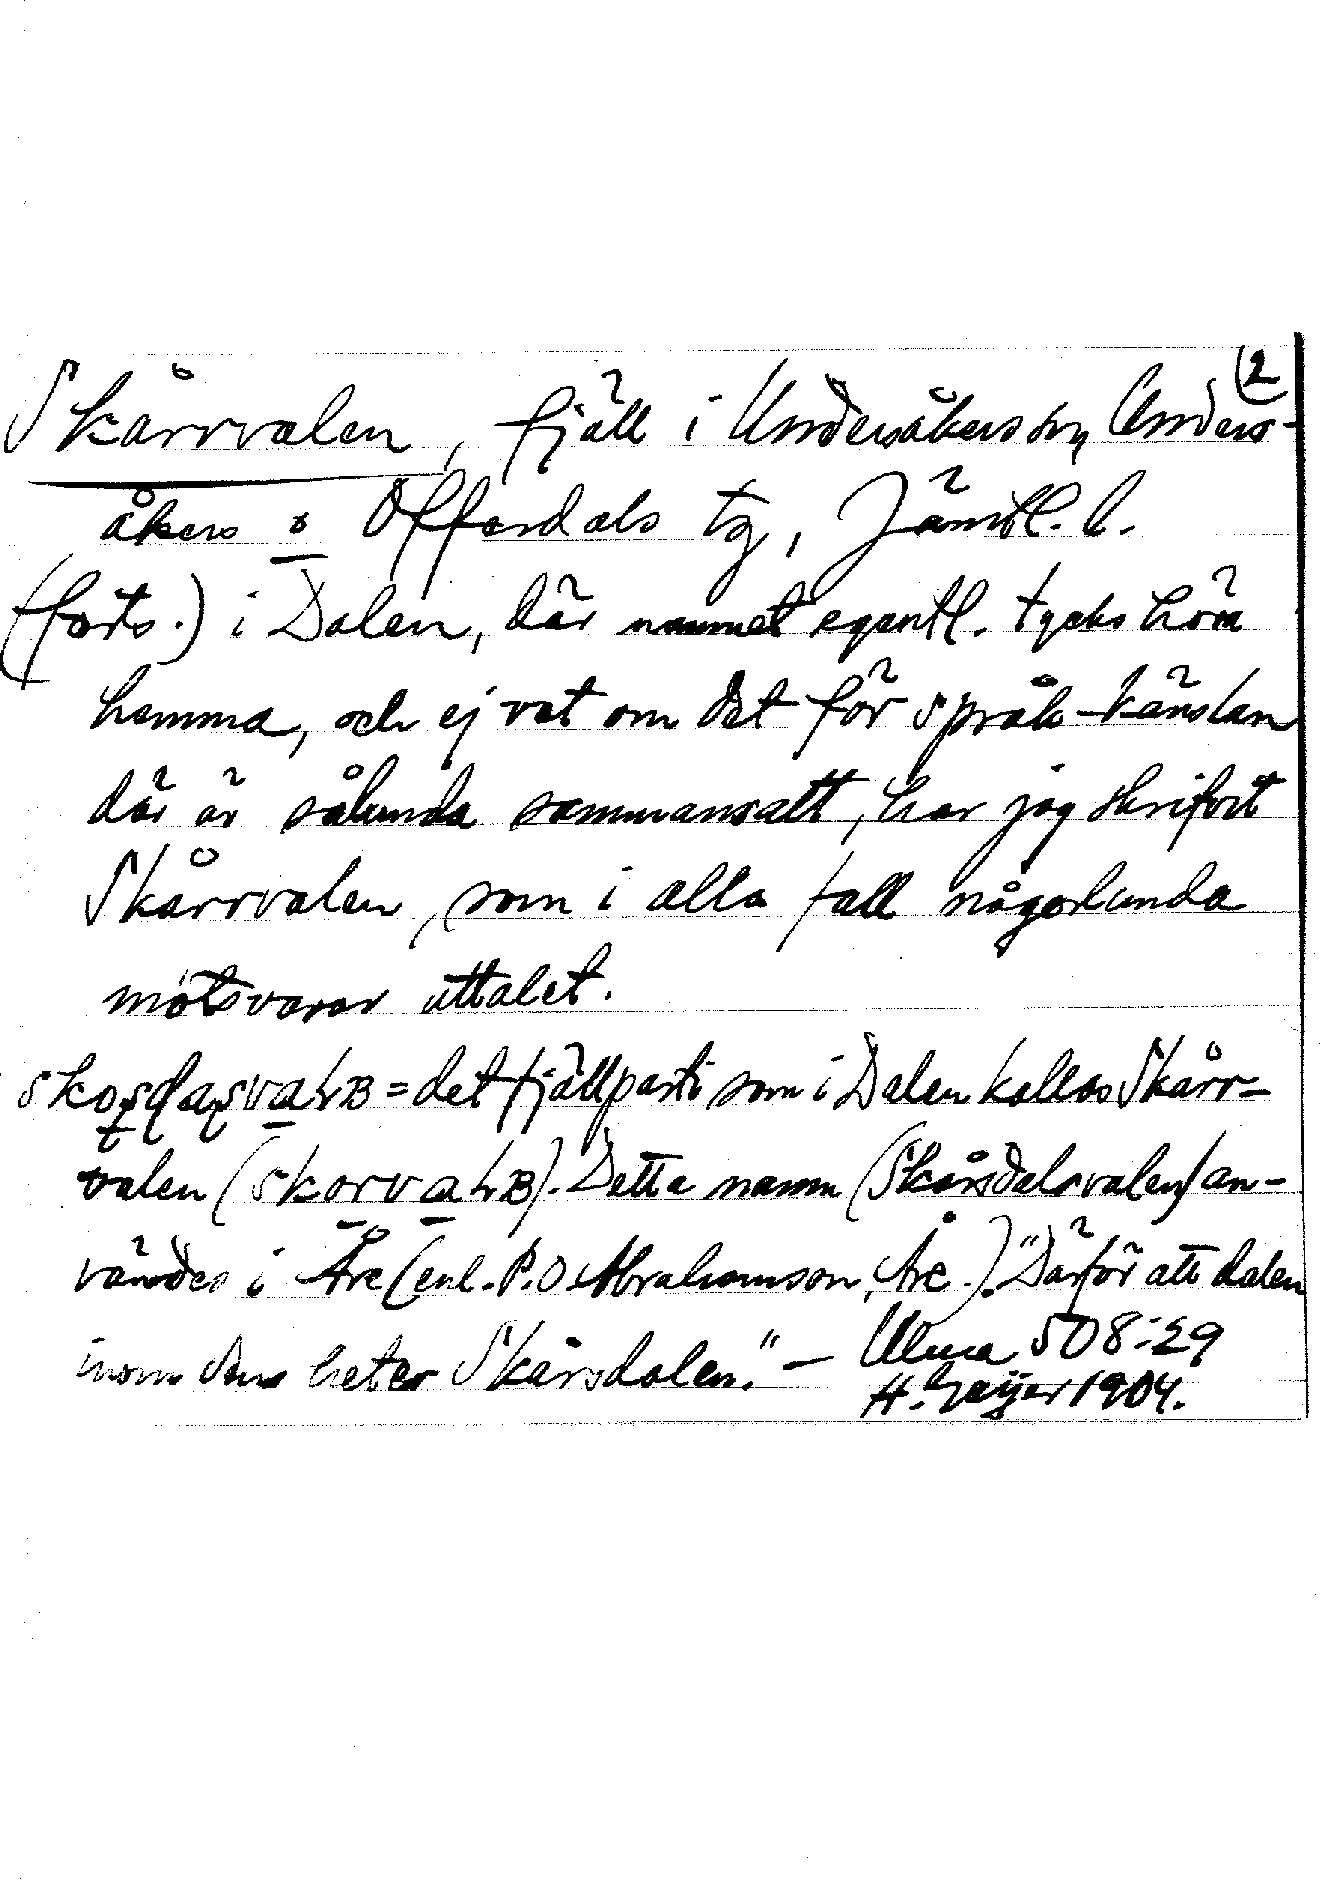 (2
Skårrvalen, fjäll i Undersåkers sn, Unders-
åkers o Offerdals tg, Jämtl. l.
(forts.) i Dalen, där namnet egentl. tycks höra
hemma, och ej vet om det för språk-känslan
där är sålunda sammansatt, har jag skrifvit
Skårrvalen, som i alla fall någorlunda
motsvarar uttalet.
= det fjällparti som i Dalen kallas Skårr-
valen (). Detta namn (Skårsdalsvalen) an-
vändes i Åre (enl. P. O. Abrahamson, Åre.). "Därför att dalen
inom dens heter Skårsdalen." —
Ulma 508:29
H. Geijer 1904.